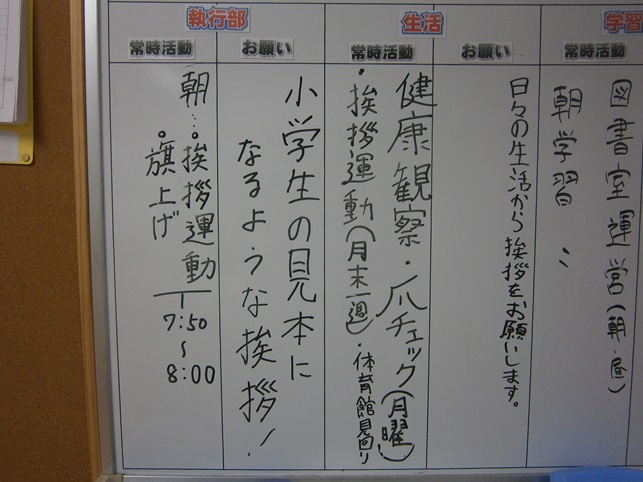 執行部
常時活動
朝…・挨拶運動
・旗上げ
7:50
〜
8:00
お願い
小学生の見本に
なるような挨拶!
生活
常時活動
健康観察・爪チェック(月曜)
・挨拶運動(月末一週)・体育館見回り
お願い
日々の生活から挨拶をお願いします。
学習
常時活動
図書室運営(朝・昼)
朝学習 〃